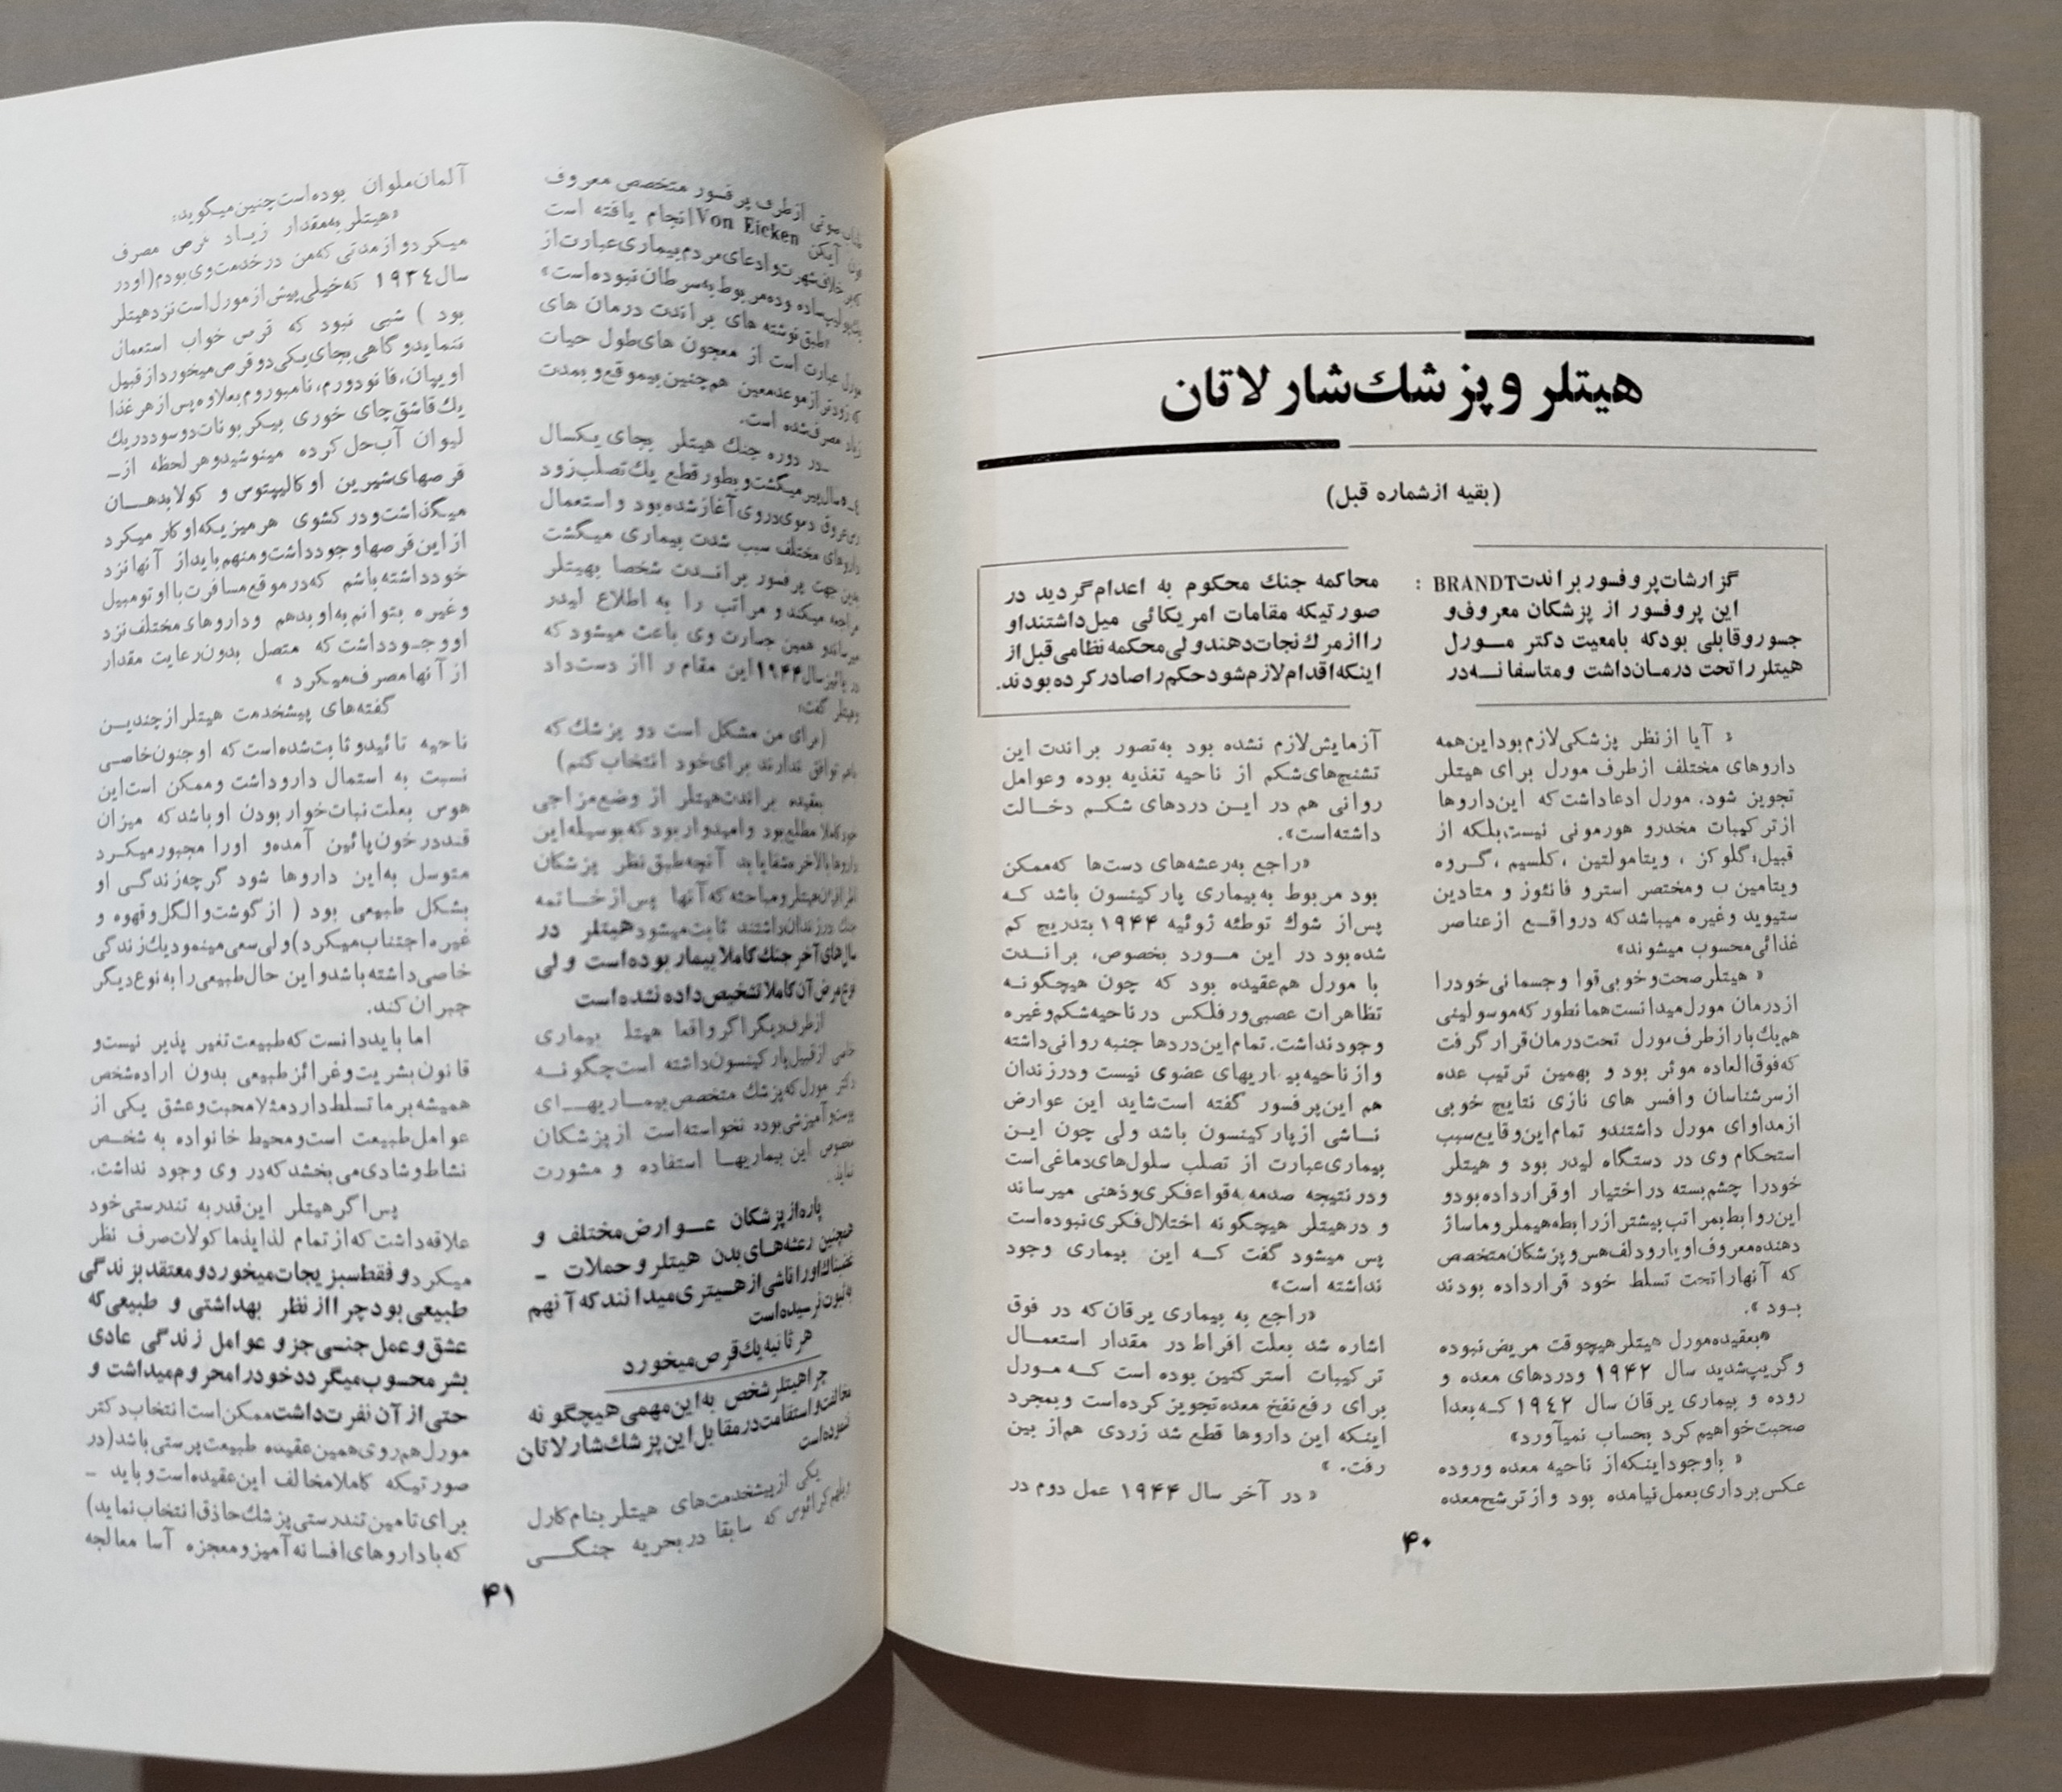 هیتلر و پزشك شارلاتان
(بقیه از شماره قبل)
گزارشات پروفسور براندت BRANDT :
این پروفسور از پزشکان معروف و
جسور و قابلی بود که بامعیت دکتر مورل
هیتلر را تحت درمان داشت و متاسفانه در
محاکمه جنك محکوم به اعدام گردید در
صورتیکه مقامات امریکائی میل داشتند او
را از مرك نجات دهند ولی محکمه نظامی قبل از
اینکه اقدام لازم شود حکم را صادر کرده بودند.
« آیا از نظر پزشکی لازم بود این همه
داروهای مختلف از طرف مورل برای هیتلر
تجویز شود. مورل ادعا داشت که این داروها
از ترکیبات مخدر و هورمونی نیست بلکه از
قبیل: گلوکز ، ویتامولتین ، کلسیم ، گروه
ویتامین ب و مختصر استرو فانئوز و متادین
ستیوید و غیره میباشد که در واقع از عناصر
غذائی محسوب میشوند»
« هیتلر صحت و خوبی قوا و جسمانی خود را
از درمان مورل میدانست همانطور که موسولینی
هم یك بار از طرف مورل تحت درمان قرار گرفت
که فوق العاده موثر بود و بهمین ترتیب عده
از سرشناسان و افسر های نازی نتایج خوبی
از مداوای مورل داشتند و تمام این وقایع سبب
استحکام وی در دستگاه لیدر بود و هیتلر
خود را چشم بسته در اختیار او قرار داده بود و
این روابط بمراتب بیشتر از رابطه هیملر و ماساژ
دهنده معروف او یا رودلف هس و پزشکان متخصص
که آنها را تحت تسلط خود قرار داده بودند
بود ».
«بعقیده مورل هیتلر هیچوقت مریض نبوده
و گریپ شدید سال ۱۹۴۲ و دردهای معده و
روده و بیماری یرقان سال ۱۹٤۲ که بعدا
صحبت خواهیم کرد بحساب نمیآورد»
« باوجود اینکه از ناحیه معده و روده
عکس برداری بعمل نیامده بود و از ترشح معده
آزمایش لازم نشده بود به تصور براندت این
تشنج‌های شکم از ناحیه تغذیه بوده و عوامل
روانی هم در این دردهای شکم دخالت
داشته است».
«راجع به رعشه‌های دست‌ها که ممکن
بود مربوط به بیماری پارکینسون باشد که
پس از شوك توطئه ژوئیه ۱۹۴۴ بتدریج کم
شده بود در این مورد بخصوص، براندت
با مورل هم عقیده بود که چون هیچگونه
تظاهرات عصبی و رفلکس در ناحیه شکم و غیره
وجود نداشت. تمام این دردها جنبه روانی داشته
و از ناحیه بیماریهای عضوی نیست و در زندان
هم این پرفسور گفته است شاید این عوارض
ناشی از پارکینسون باشد ولی چون این
بیماری عبارت از تصلب سلول‌های دماغی است
و در نتیجه صدمه به قواء فکری و ذهنی میرساند
و در هیتلر هیچگونه اختلال فکری نبوده است
پس میشود گفت که این بیماری وجود
نداشته است»
«راجع به بیماری یرقان که در فوق
اشاره شد بعلت افراط در مقدار استعمال
ترکیبات استرکنین بوده است که مورل
برای رفع نفخ معده تجویز کرده است و بمجرد
اینکه این داروها قطع شد زردی هم از بین
رفت. »
« در آخر سال ۱۹۴۴ عمل دوم در
۴۰
صوتی از طرف پرفسور متخصص معروف
آیکن Von Eicken انجام یافته است
خلاف شهرت و ادعای مردم بیماری عبارت از
پولیپ ساده و ده مربوط به سرطان نبوده است»
«طبق نوشته های براندت درمان های
مورل عبارت است از معجون های طول حیات
که زودتر از موعد معین هم چنین بیموقع و بمدت
زیاد مصرف شده است.
ـ در دوره جنك هیتلر بجای یکسال
٤ـ۵ سال پیر میگشت و بطور قطع یك تصلب زود
رس عروق دموی در وی آغاز شده بود و استعمال
داروهای مختلف سبب شدت بیماری میگشت
بدین جهت پرفسور براندت شخصا بهیتلر
مراجعه میکند و مراتب را به اطلاع لیدر
میرساند و همین جسارت وی باعث میشود که
در پائیز سال ۱۹۴۴ این مقام را از دست داد
و هیتلر گفت:
(برای من مشکل است دو پزشك که
باهم توافق ندارند برای خود انتخاب کنم)
بعقیده براندت هیتلر از وضع مزاجی
خود کاملا مطلع بود و امیدوار بود که بوسیله این
داروها بالاخره شفا یابد آنچه طبق نظر پزشکان
اطرافیان هیتلر و مباحثه که آنها پس از خاتمه
جنك در زندان داشتند ثابت میشود هیتلر در
سال‌های آخر جنك کاملا بیمار بوده است ولی
نوع مرض آن کاملا تشخیص داده نشده است
از طرف دیگر اگر واقعا هیتلر بیماری
خاصی از قبیل پارکینسون داشته است چگونه
دکتر مورل که پزشك متخصص بیماریهای
پوست و آمیزشی بوده نخواسته است از پزشکان
مخصوص این بیماریها استفاده و مشورت
نماید.
پاره از پزشکان عوارض مختلف و
همچنین رعشه‌های بدن هیتلر و حملات ـ
غشناك او را ناشی از هیتری میدانند که آنهم
بثبوت نرسیده است
هر ثانیه یك قرص میخورد
چرا هیتلر شخص به این مهمی هیچگونه
مخالفت و استقامت در مقابل این پزشك شارلاتان
ننموده است
یکی از پیشخدمت‌های هیتلر بنام کارل
ویلهم کرائوس که سابقا در بحریه جنگی
آلمان ملوان بوده است چنین میگوید:
«هیتلر به مقدار زیاد قرص مصرف
میکرد و از مدتی که من در خدمت وی بودم (او در
سال ۱۹۳٤ که خیلی پیش از مورل است نزد هیتلر
بود ) شبی نبود که قرص خواب استعمال
ننماید و گاهی بجای یکی دو قرص میخورد از قبیل
اویپان، فانودورم، نامبوروم بعلاوه پس از هر غذا
یك قاشق چای خوری بیکربونات دوسود در یك
لیوان آب حل کرده مینوشید و هر لحظه از ـ
قرصهای شیرین اوکالیپتوس و کولا بدهان
میگذاشت و در کشوی هر میزیکه او کار میکرد
از این قرصها وجود داشت و منهم باید از آنها نزد
خود داشته باشم که در موقع مسافرت با اوتومبیل
و غیره بتوانم به او بدهم و داروهای مختلف نزد
او وجود داشت که متصل بدون رعایت مقدار
از آنها مصرف میکرد »
گفته‌های پیشخدمت هیتلر از چندین
ناحیه تائید و ثابت شده است که او جنون خاصی
نسبت به استمال دارو داشت و ممکن است این
هوس بعلت نبات خوار بودن او باشد که میزان
قند در خون پائین آمده و اورا مجبور میکرد
متوسل به این داروها شود گرچه زندگی او
بشکل طبیعی بود ( از گوشت و الکل و قهوه و
غیره اجتناب میکرد) ولی سعی مینمود یك زندگی
خاصی داشته باشد و این حال طبیعی را به نوع دیگر
جبران کند.
اما باید دانست که طبیعت تغیر پذیر نیست و
قانون بشریت و غرائز طبیعی بدون اراده شخص
همیشه بر ما تسلط دارد مثلا محبت و عشق یکی از
عوامل طبیعت است و محیط خانواده به شخص
نشاط و شادی می بخشد که در وی وجود نداشت.
پس اگر هیتلر این قدر به تندرستی خود
علاقه داشت که از تمام لذایذ ماکولات صرف نظر
میکرد و فقط سبزیجات میخورد و معتقد بزندگی
طبیعی بود چرا از نظر بهداشتی و طبیعی که
عشق و عمل جنسی جز و عوامل زندگی عادی
بشر محسوب میگردد خود را محروم میداشت و
حتی از آن نفرت داشت ممکن است انتخاب دکتر
مورل هم روی همین عقیده طبیعت پرستی باشد (در
صورتیکه کاملا مخالف این عقیده است و باید ـ
برای تامین تندرستی پزشك حاذق انتخاب نماید)
که با داروهای افسانه آمیز و معجزه آسا معالجه
۴۱